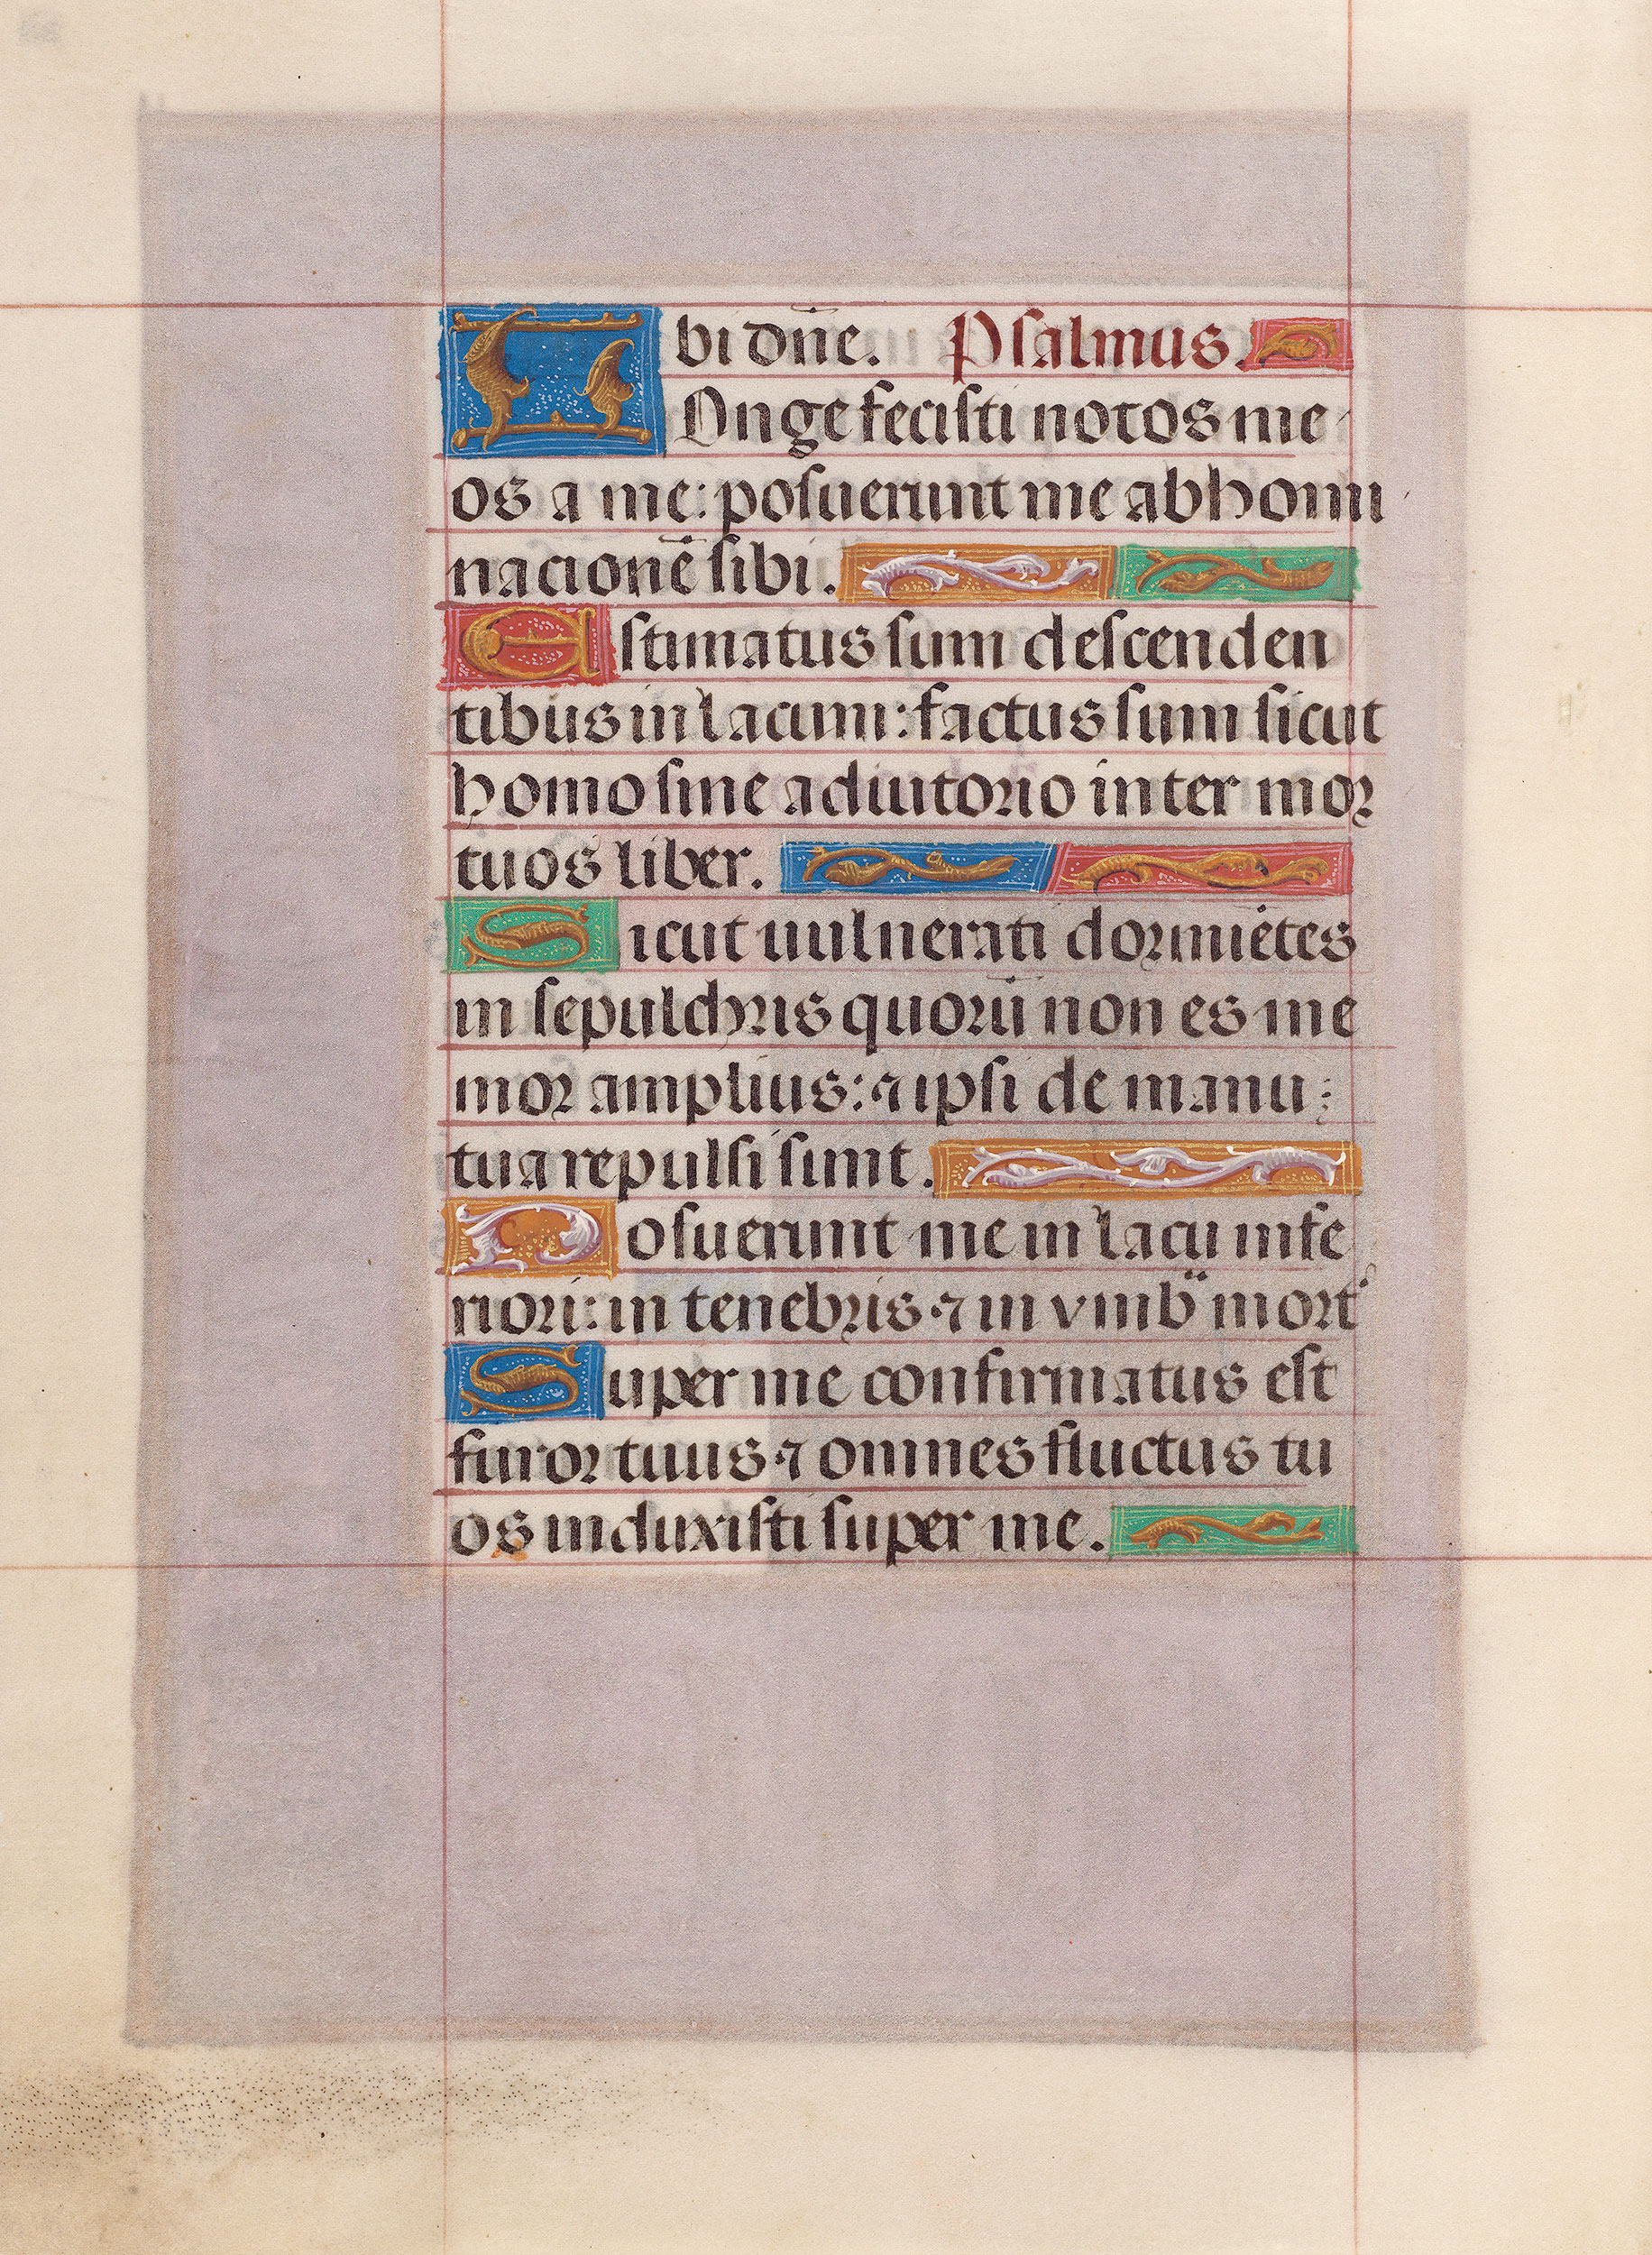 bi dn̄e. Psalmus.
Longe fecisti notos me
os a me: posuerunt me abhomi
nacionē sibi.
Estimatus sum descenden
tibus in lacum: factus sum sicut
homo sine adiutorio inter mor
tuos liber.
Sicut uulnerati dormiētes
in sepulchris quorū non es me
mor amplius: ⁊ ipsi de manu
tua repulsi sunt.
Posuerunt me in lacu infe
riori: in tenebris ⁊ in vmb̈ mort᾽
Super me confirmatus est
furor tuus ⁊ omnes fluctus tu
os induxisti super me.